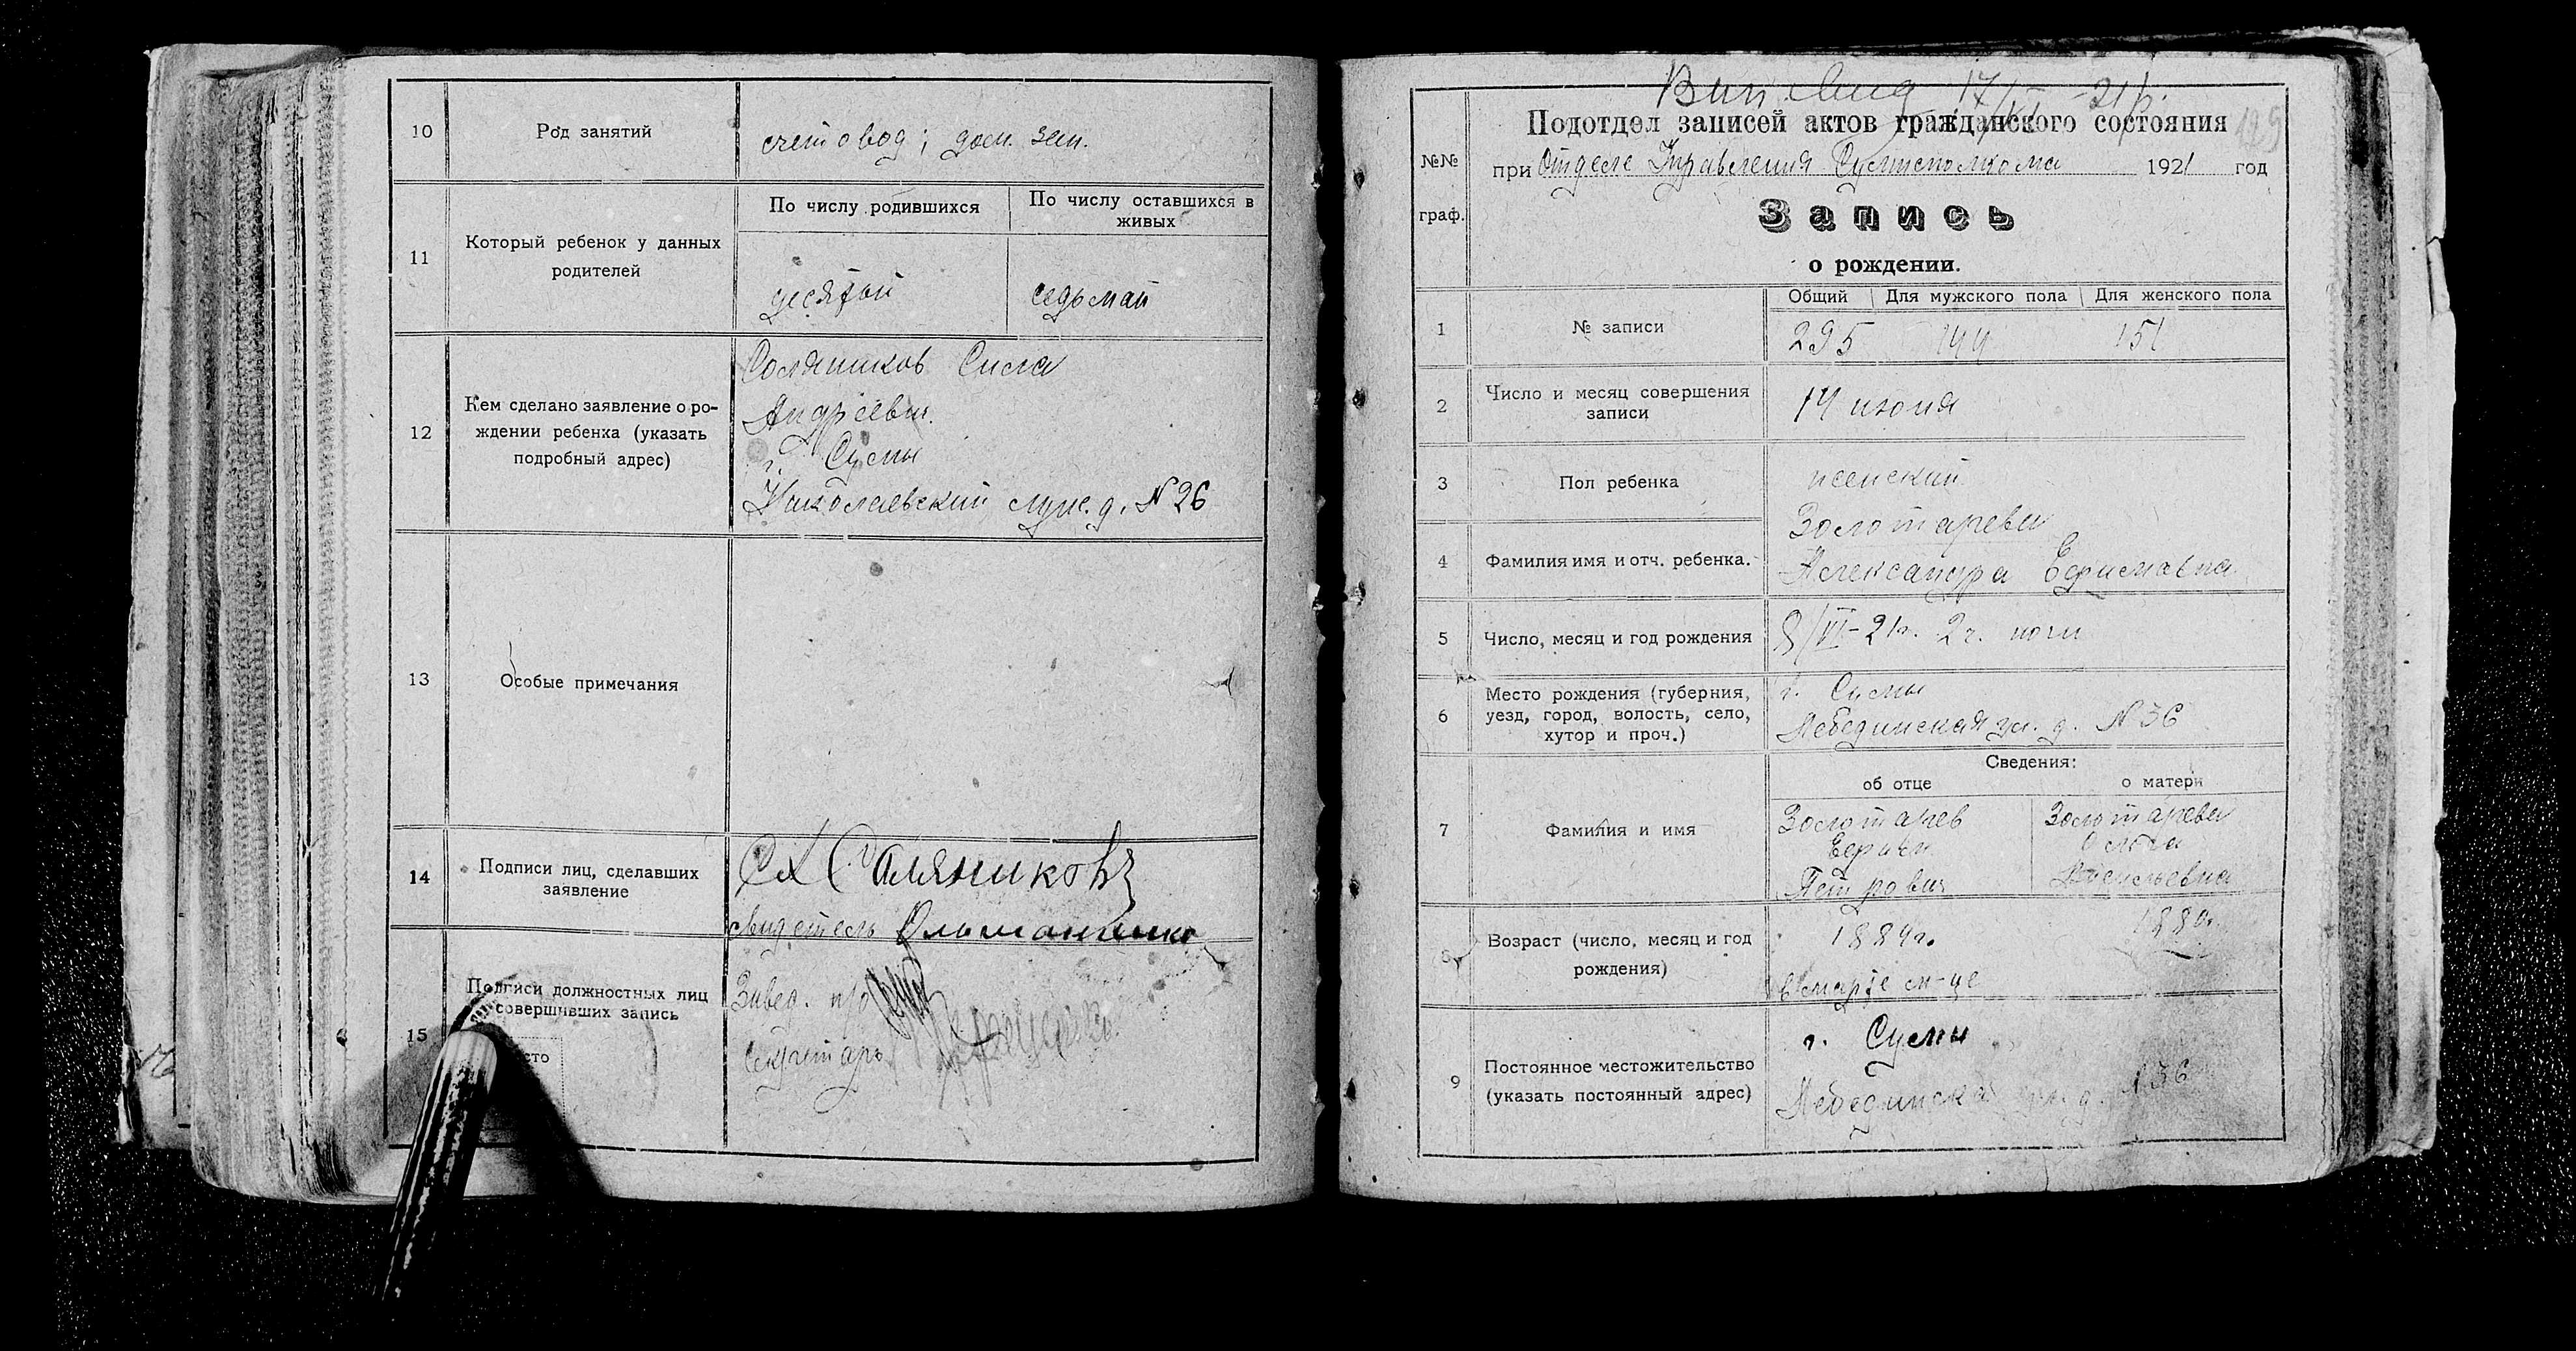 10 Род занятий счетовод; дом. зан.
11 Который ребенок у данных родителей
По числу родившихся По числу оставшихся в живых
десятый седьмой
12 Кем сделано заявление о ро-
ждении ребенка (указать
подробный адрес)
Соляников Сила
Андреевич
г. Сумы
Николаевский д. № 26
13 Особые примечания
14 Подписи лиц, сделавших
заявление
С. Соляниковъ
свидетель
15 Подписи должностных лиц
совершивших запись
Завед. п/о
Секретарь
17/VI -21 г.
Подотдел записей актов гражданского состояния
№№ граф.
при Отделе Управления 1921 год
Запись
о рождении.
Общий Для мужского пола Для женского пола
1 № записи 295 144 151
2 Число и месяц совершения
записи
14 июня
3 Пол ребенка женский
Золотарева
4 Фамилия имя и отч. ребенка. Александра Ефимовна
5 Число, месяц и год рождения 8/VI-21г. 2 ч. ночи
6 Место рождения (губерния,
уезд, город, волость, село,
хутор и проч.)
г. Сумы
Лебединская ул. д. № 36
Сведения:
об отце о матери
7 Фамилия и имя
Золотарев Золотарева
Ефим Ольга
Петрович Васильевна
8 Возраст (число, месяц и год
рождения)
1884г. 1880г.
в марте м-це
9 Постоянное местожительство
(указать постоянный адрес)
г. Сумы
Лебединская ул. д. № 36